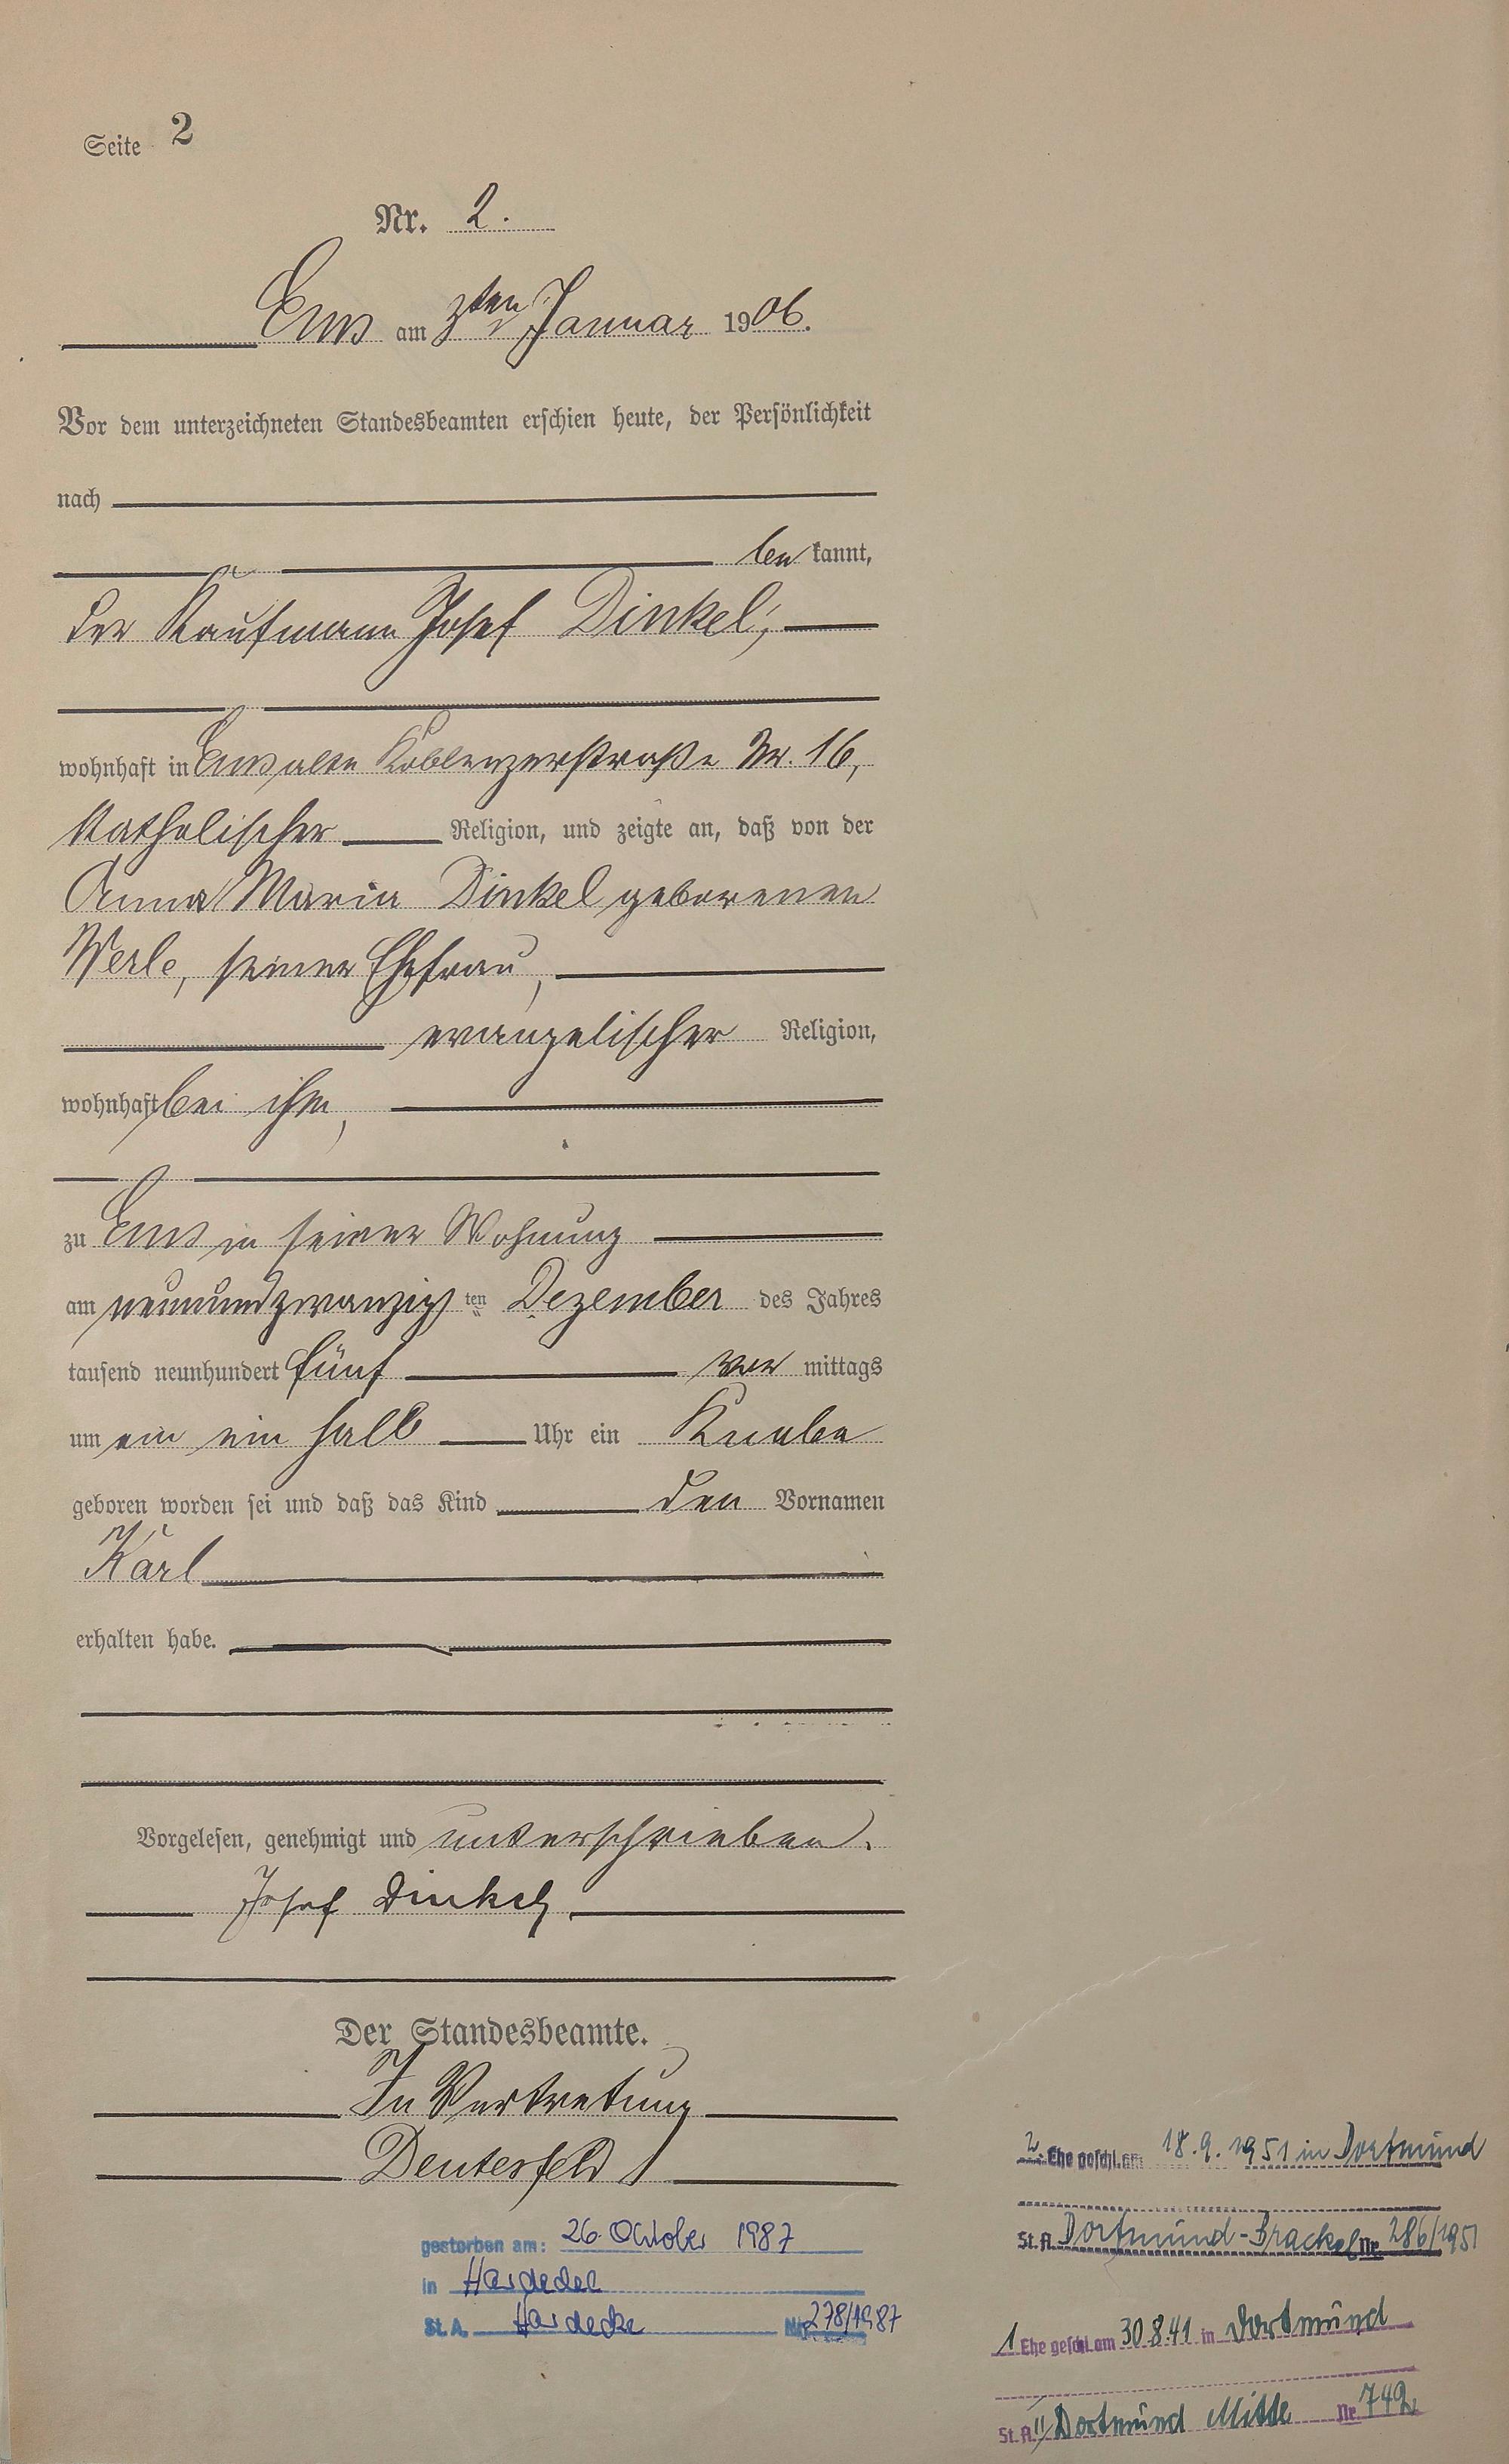 Seite 2
Nr. 2.
Ems am 3ten Januar 1906.
Vor dem unterzeichneten Standesbeamten erschien heute, der Persönlichkeit
nach
be kannt,
der Kaufmann Josef Dinkel,
wohnhaft in Ems alte Koblenzerstraße Nr. 16,
katholischer Religion, und zeigte an, daß von der
Anna Maria Dinkel geborenen
Werle, seiner Ehefrau,
evangelischer Religion,
wohnhaft bei ihm,
zu Ems in seiner Wohnung
am neunundzwanzigs ten Dezember des Jahres
tausend neunhundert fünf vor mittags
um ein ein halb Uhr ein Knabe
geboren worden sei und daß das Kind den Vornamen
Karl
erhalten habe.
Vorgelesen, genehmigt und unterschrieben.
Josef Dinkel
Der Standesbeamte.
In Vertretung
Deutesfeld
gestorben am: 26. Oktober 1987
in Herdecke
St. A. Herdecke Nr. 278/1987
2. Ehe geschl. am 18.9.1951 in Dortmund
St. A. Dortmund-Brackel Nr. 286/1951
1 Ehe geschl. am 30.8.41 in Dortmund
St. A. Dortmund Mitte Nr. 742